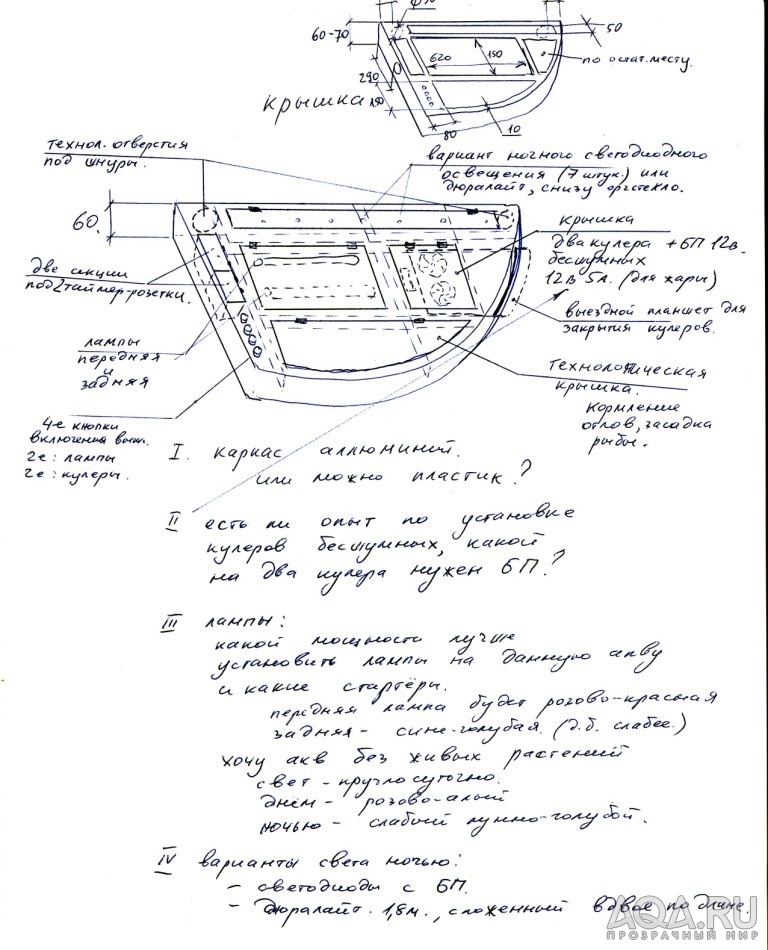 60-70
50
620
150
по остат. месту.
290
крышка
80
10
технол. отверстия
под шнуры.
вариант ночного светодиодного
освещения (7 штук.) или
дюралайт, снизу оргстекло.
60.
крышка
два кулера + БП 12в.
бесшумных
12в 5л. (для жары)
две секции
под 2 таймер-розетки.
выездной планшет для
закрытия кулеров.
лампы
передняя
и
задняя
технологическая
крышка.
кормление
отлов, засадка
рыбы.
4-е кнопки
включения выкл.
2е: лампы
2е: кулеры.
I. каркас аллюминий.
или можно пластик?
II есть ли опыт по установке
кулеров бесшумных, какой
на два кулера нужен БП?
III лампы:
какой мощности лучше
установить лампы на данную акву
и какие стартёры.
передняя лампа будет розово-красная
задняя - сине-голубая. (д.б. слабее.)
хочу акв без живых растений
свет - круглосуточно.
днём - розово-алый
ночью - слабый лунно-голубой.
IV варианты света ночью:
- светодиоды с БП.
- дюралайт. 1,8м., сложенный вдвое по длине.
AQA.RU
ПРОЗРАЧНЫЙ МИР